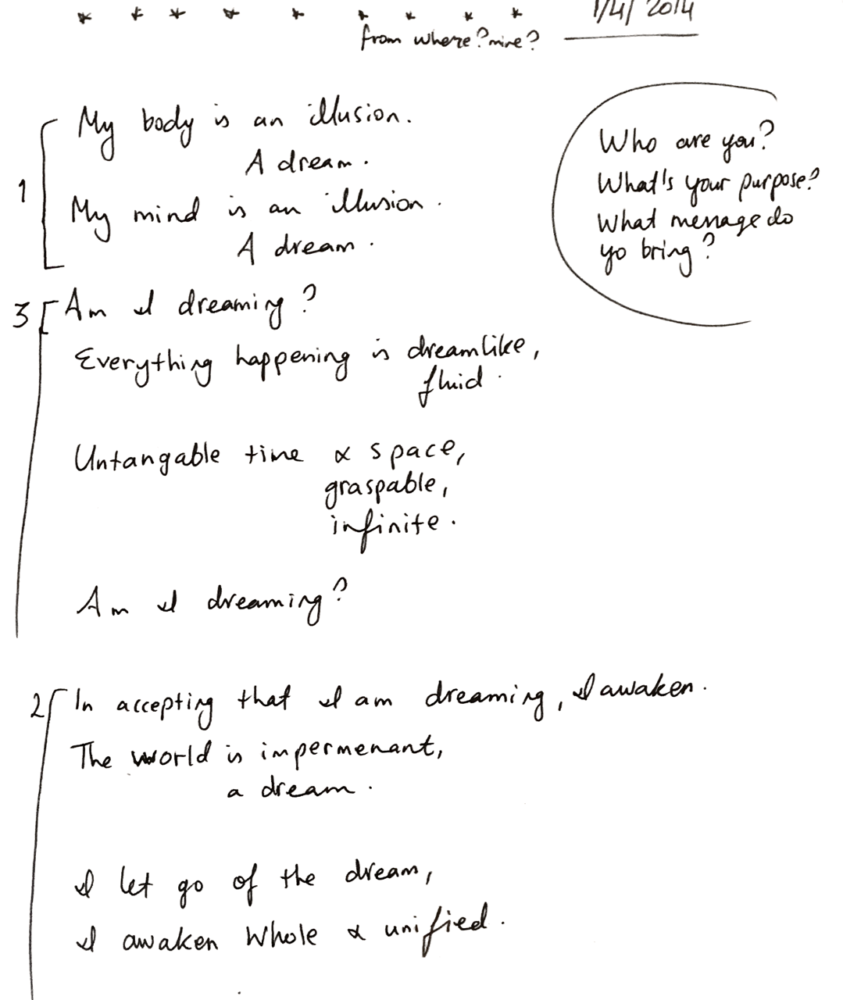 * * * * * * * * *
1/4/2014
from where? mine?
My body is an illusion.
A dream.
1
My mind is an illusion.
A dream.
Who are you?
What's your purpose?
What message do
yo bring?
3 Am I dreaming?
Everything happening is dreamlike,
fluid.
Untangable time & space,
graspable,
infinite.
Am I dreaming?
2 In accepting that I am dreaming, I awaken.
The world is impermenant,
a dream.
I let go of the dream,
I awaken Whole & unified.